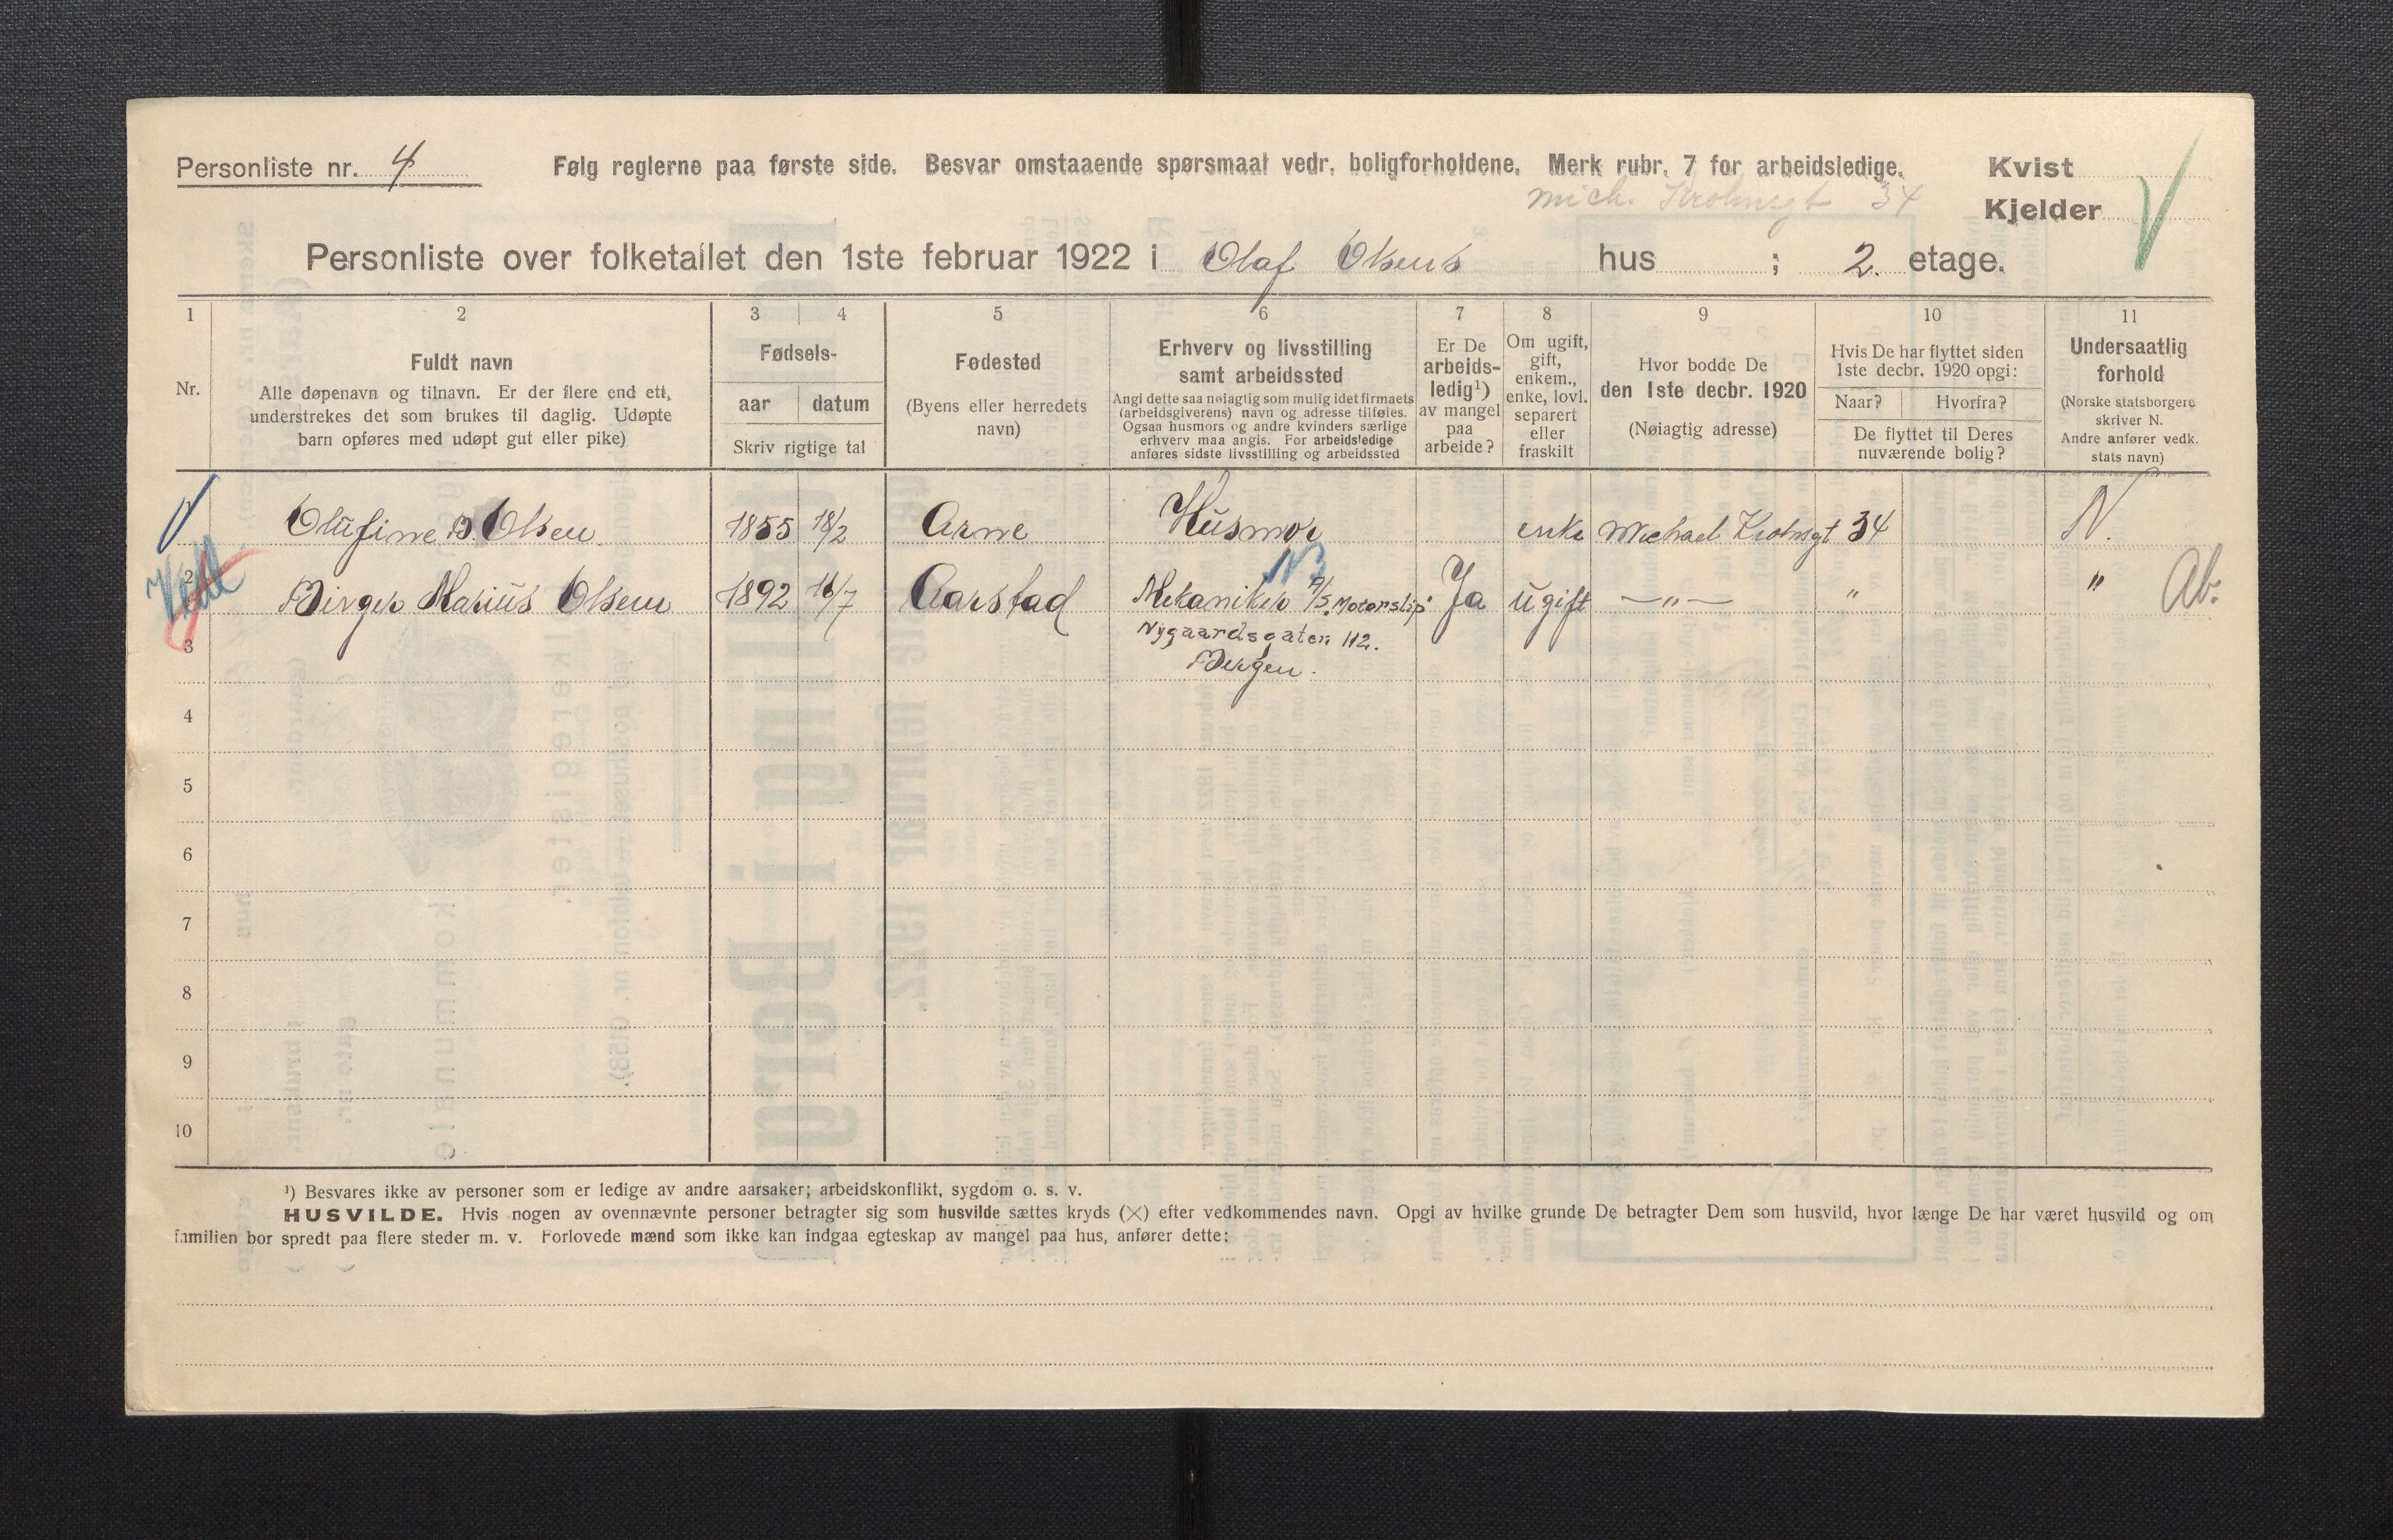 Personliste nr. 4
Følg reglerne paa første side. Besvar omstaaende spørsmaal vedr. boligforholdene. Merk rubr. 7 for arbeidsledige.
Kvist
Mich. Krohnsgt 34
Kjelder
Personliste over folketallet den 1ste februar 1922 i Olaf Olsens hus ; 2. etage.
1 2 3 4 5 6 7 8 9 10 11
Nr.
Fuldt navn
Alle døpenavn og tilnavn. Er der flere end ett,
understrekes det som brukes til daglig. Udøpte
barn opføres med udøpt gut eller pike)
Fødsels-
aar datum
Skriv rigtige tal
Fødested
(Byens eller herredets
navn)
Erhverv og livsstilling
samt arbeidssted
Angi dette saa nøiagtig som mulig idet firmaets
(arbeidsgiverens) navn og adresse tilføies.
Ogsaa husmors og andre kvinders særlige
erhverv maa angis. For arbeidsledige
anføres sidste livsstilling og arbeidssted
Er De
arbeids-
ledig¹)
av mangel
paa
arbeide?
Om ugift,
gift,
enkem.,
enke, lovl.
separert
eller
fraskilt
Hvor bodde De
den 1ste decbr. 1920
(Nøiagtig adresse)
Hvis De har flyttet siden
1ste decbr. 1920 opgi:
Naar? Hvorfra?
De flyttet til Deres
nuværende bolig?
Undersaatlig
forhold
(Norske statsborgere
skriver N.
Andre anfører vedk.
stats navn)
Olufine B. Olsen 1855 18/2 Arne Husmor enke Michael Krohnsgt 34 N.
2 Birger Marius Olsen 1892 16/7 Aarstad Mekaniker A/S. Motorslip Ja ugift —"— " " Ab.
Nygaardsgaten 112.
3 Bergen.
4
5
6
7
8
9
10
¹) Besvares ikke av personer som er ledige av andre aarsaker; arbeidskonflikt, sygdom o. s. v.
HUSVILDE. Hvis nogen av ovennævnte personer betragter sig som husvilde sættes kryds (×) efter vedkommendes navn. Opgi av hvilke grunde De betragter Dem som husvild, hvor længe De har været husvild og om
familien bor spredt paa flere steder m. v. Forlovede mænd som ikke kan indgaa egteskap av mangel paa hus, anfører dette: